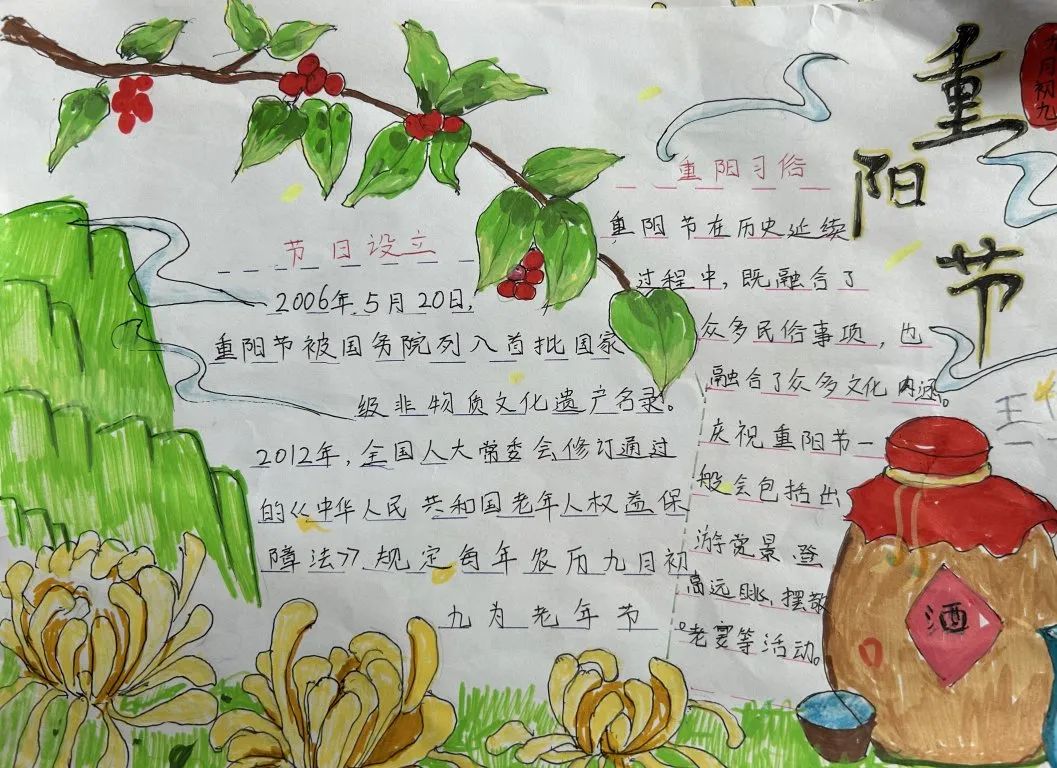 重阳节
九月初九
节日设立
2006年5月20日,
重阳节被国务院列入首批国家
级非物质文化遗产名录。
2012年,全国人大常委会修订通过
的《中华人民共和国老年人权益保
障法》规定每年农历九日初
九为老年节
重阳习俗
重阳节在历史延续
过程中,既融合了
众多民俗事项,也
融合了众多文化内涵。
庆祝重阳节一
般会包括出
游觉景、登
高远眺、摆敬
老宴等活动。
王
酒